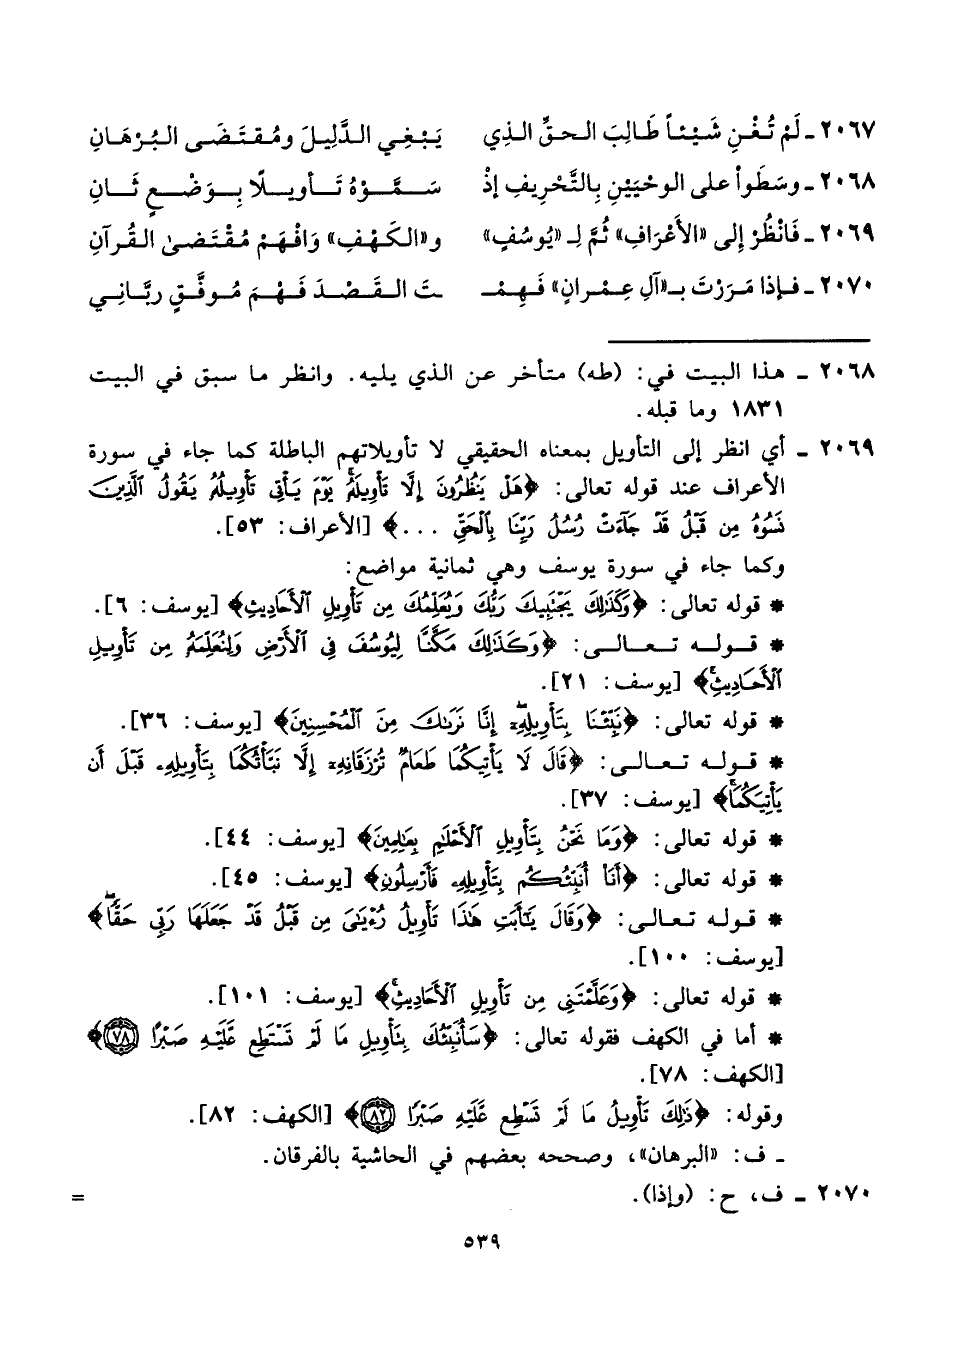 ٢٠٦٧ ـ لَمْ تُغْنِ شَيْئاً طَالِبَ الحقِّ الذِي يَبْغِي الدَّلِيلَ ومُقتَضَى البُرْهَانِ
٢٠٦٨ ـ وسَطَواْ على الوحْيَيْنِ بِالتَّحْرِيفِ إذْ سَمَّوْهُ تَأويلًا بِوَضْعٍ ثَانِ
٢٠٦٩ ـ فَانْظُرْ إلى «الأَعْرَافِ» ثُمَّ لِـ «يُوسُفٍ» و«الكَهْفِ» وَافْهَمْ مُقْتَضىٰ القُرآنِ
٢٠٧٠ ـ فإذا مَرَرْتَ بـ«آلِ عِمْرانٍ» فَهِمْـ ـتَ القَصْدَ فَهْمَ مُوفَّقٍ ربَّانِي
٢٠٦٨ ـ هذا البيت في: (طه) متأخر عن الذي يليه. وانظر ما سبق في البيت
١٨٣١ وما قبله.
٢٠٦٩ ـ أي انظر إلى التأويل بمعناه الحقيقي لا تأويلاتهم الباطلة كما جاء في سورة
الأعراف عند قوله تعالى: ﴿هَلْ يَنظُرُونَ إِلَّا تَأْوِيلَهُۥۚ يَوْمَ يَأْتِى تَأْوِيلُهُۥ يَقُولُ ٱلَّذِينَ
نَسُوهُ مِن قَبْلُ قَدْ جَآءَتْ رُسُلُ رَبِّنَا بِٱلْحَقِّ ...﴾ [الأعراف: ٥٣].
وكما جاء في سورة يوسف وهي ثمانية مواضع:
* قوله تعالى: ﴿وَكَذَٰلِكَ يَجْتَبِيكَ رَبُّكَ وَيُعَلِّمُكَ مِن تَأْوِيلِ ٱلْأَحَادِيثِ﴾ [يوسف: ٦].
* قوله تعالى: ﴿وَكَذَٰلِكَ مَكَّنَّا لِيُوسُفَ فِى ٱلْأَرْضِ وَلِنُعَلِّمَهُۥ مِن تَأْوِيلِ
ٱلْأَحَادِيثِۚ﴾ [يوسف: ٢١].
* قوله تعالى: ﴿نَبِّئْنَا بِتَأْوِيلِهِۦٓۖ إِنَّا نَرَىٰكَ مِنَ ٱلْمُحْسِنِينَ﴾ [يوسف: ٣٦].
* قوله تعالى: ﴿قَالَ لَا يَأْتِيكُمَا طَعَامٌ تُرْزَقَانِهِۦٓ إِلَّا نَبَّأْتُكُمَا بِتَأْوِيلِهِۦ قَبْلَ أَن
يَأْتِيَكُمَاۚ﴾ [يوسف: ٣٧].
* قوله تعالى: ﴿وَمَا نَحْنُ بِتَأْوِيلِ ٱلْأَحْلَٰمِ بِعَٰلِمِينَ﴾ [يوسف: ٤٤].
* قوله تعالى: ﴿أَنَا۠ أُنَبِّئُكُم بِتَأْوِيلِهِۦ فَأَرْسِلُونِ﴾ [يوسف: ٤٥].
* قوله تعالى: ﴿وَقَالَ يَٰٓأَبَتِ هَٰذَا تَأْوِيلُ رُءْيَٰىَ مِن قَبْلُ قَدْ جَعَلَهَا رَبِّى حَقًّاۖ﴾
[يوسف: ١٠٠].
* قوله تعالى: ﴿وَعَلَّمْتَنِى مِن تَأْوِيلِ ٱلْأَحَادِيثِۚ﴾ [يوسف: ١٠١].
* أما في الكهف فقوله تعالى: ﴿سَأُنَبِّئُكَ بِتَأْوِيلِ مَا لَمْ تَسْتَطِع عَّلَيْهِ صَبْرًا ٧٨﴾
[الكهف: ٧٨].
وقوله: ﴿ذَٰلِكَ تَأْوِيلُ مَا لَمْ تَسْطِع عَّلَيْهِ صَبْرًا ٨٢﴾ [الكهف: ٨٢].
ـ ف: «البرهان»، وصححه بعضهم في الحاشية بالفرقان.
٢٠٧٠ ـ ف، ح: (وإذا). =
٥٣٩